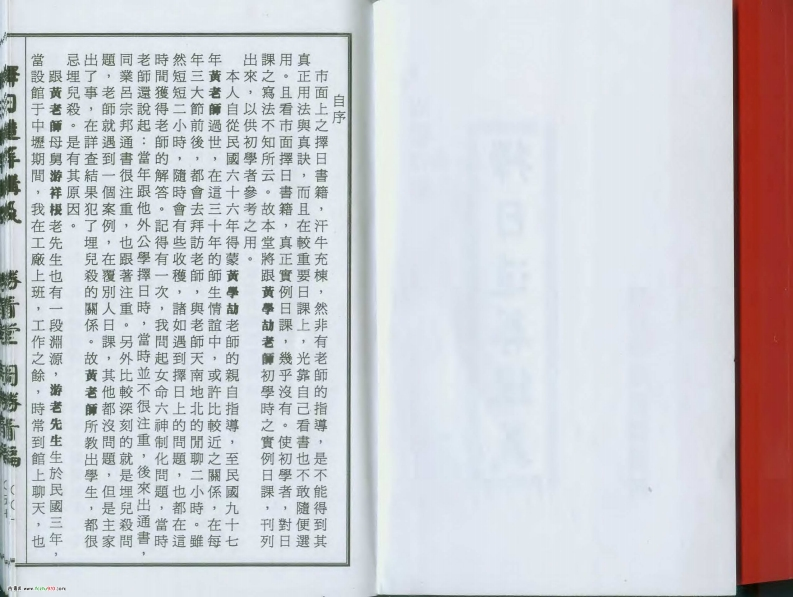 自序
市面上之擇日書籍，汗牛充棟，然非有老師的指導，是不能得到其
真正用法與真訣，而且在較重要日課上，光靠自己看書也不敢隨便選
用。且看市面擇日書籍，真正實例日課，幾乎沒有。使初學者，對日
課之寫法不知所云。故本堂將跟黃學劼老師初學時之實例日課，刊列
出來，以供初學者參考之用。
本人自從民國六十六年得蒙黃學劼老師的親自指導，至民國九十七
年黃老師過世，在這三十年的師生情誼中，或許比較近之關係，在每
年三大節前後，都會去拜訪老師，與老師天南地北的閒聊二小時。雖
然短短二小時，隨時會有些收穫，諸如遇到擇日上的問題，也都在這
時間獲得老師的解答。記得有一次，我問起女命六神制化問題，當時
老師還說起：當年跟他外公學擇日時，當時並不很注重，後來出通書，
同業呂宗邦通書很注重，也跟著注重。另外比較深刻的就是埋兒殺問
題，老師就遇到一個案例，在覆別人日課，其他都沒問題，但是主家
出了事，在詳查結果犯了埋兒殺的關係。故黃老師所教出學生，都很
忌埋兒殺。是有其原因。
跟黃老師母舅游祥根老先生也有一段淵源，游老先生生於民國三年，
當設館于中壢期間，我在工廠上班，工作之餘，時常到館上聊天，也